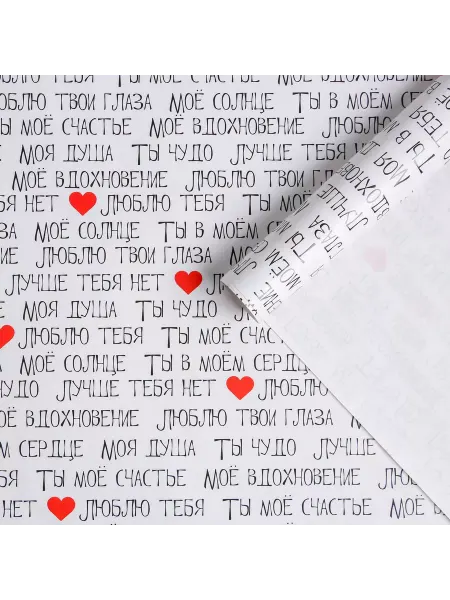 ЮБЛЮ ТЕБЯ МОЁ СЧАСТЬЕ МОЁ ВДОХНОВЕНИЕ
ЮБЛЮ ТВОИ ГЛАЗА МОЁ СОЛНЦЕ ТЫ В МОЁМ СЕР
Ы МОЁ СЧАСТЬЕ МОЁ ВДОХНОВЕНИЕ
МОЯ ДУША ТЫ ЧУДО ЛУЧШЕ ТЕБЯ Н
МОЁ ВДОХНОВЕНИЕ ЛЮБЛЮ ТВОИ
БЯ НЕТ ЛЮБЛЮ ТЕБЯ МОЁ С
МОЁ СОЛНЦЕ ТЫ В МОЁМ
Е ЛЮБЛЮ ТВОИ ГЛАЗА МОЁ
ЛУЧШЕ ТЕБЯ НЕТ ЛЮ
МОЯ ДУША ТЫ ЧУДО Л
ЛЮБЛЮ ТЕБЯ МОЁ СЧАСТЬЕ
МОЁ СОЛНЦЕ ТЫ В МОЁМ СЕРДЦ
УДО ЛУЧШЕ ТЕБЯ НЕТ ЛЮБЛЮ
ОЁ ВДОХНОВЕНИЕ ЛЮБЛЮ ТВОИ ГЛАЗА
М СЕРДЦЕ МОЯ ДУША ТЫ ЧУДО ЛУЧШЕ
ТЫ МОЁ СЧАСТЬЕ МОЁ ВДОХНОВЕНИЕ Л
НЕТ ЛЮБЛЮ ТЕБЯ ТЫ МОЁ СЧАСТЬЕ МОЁ В